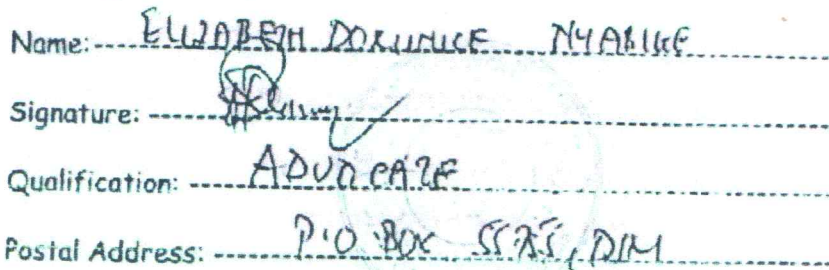 Name: ELIZABETH DORUNICE NYABIGE
Signature:
Qualification: ADVOCATE
Postal Address: P.O BOX DSM